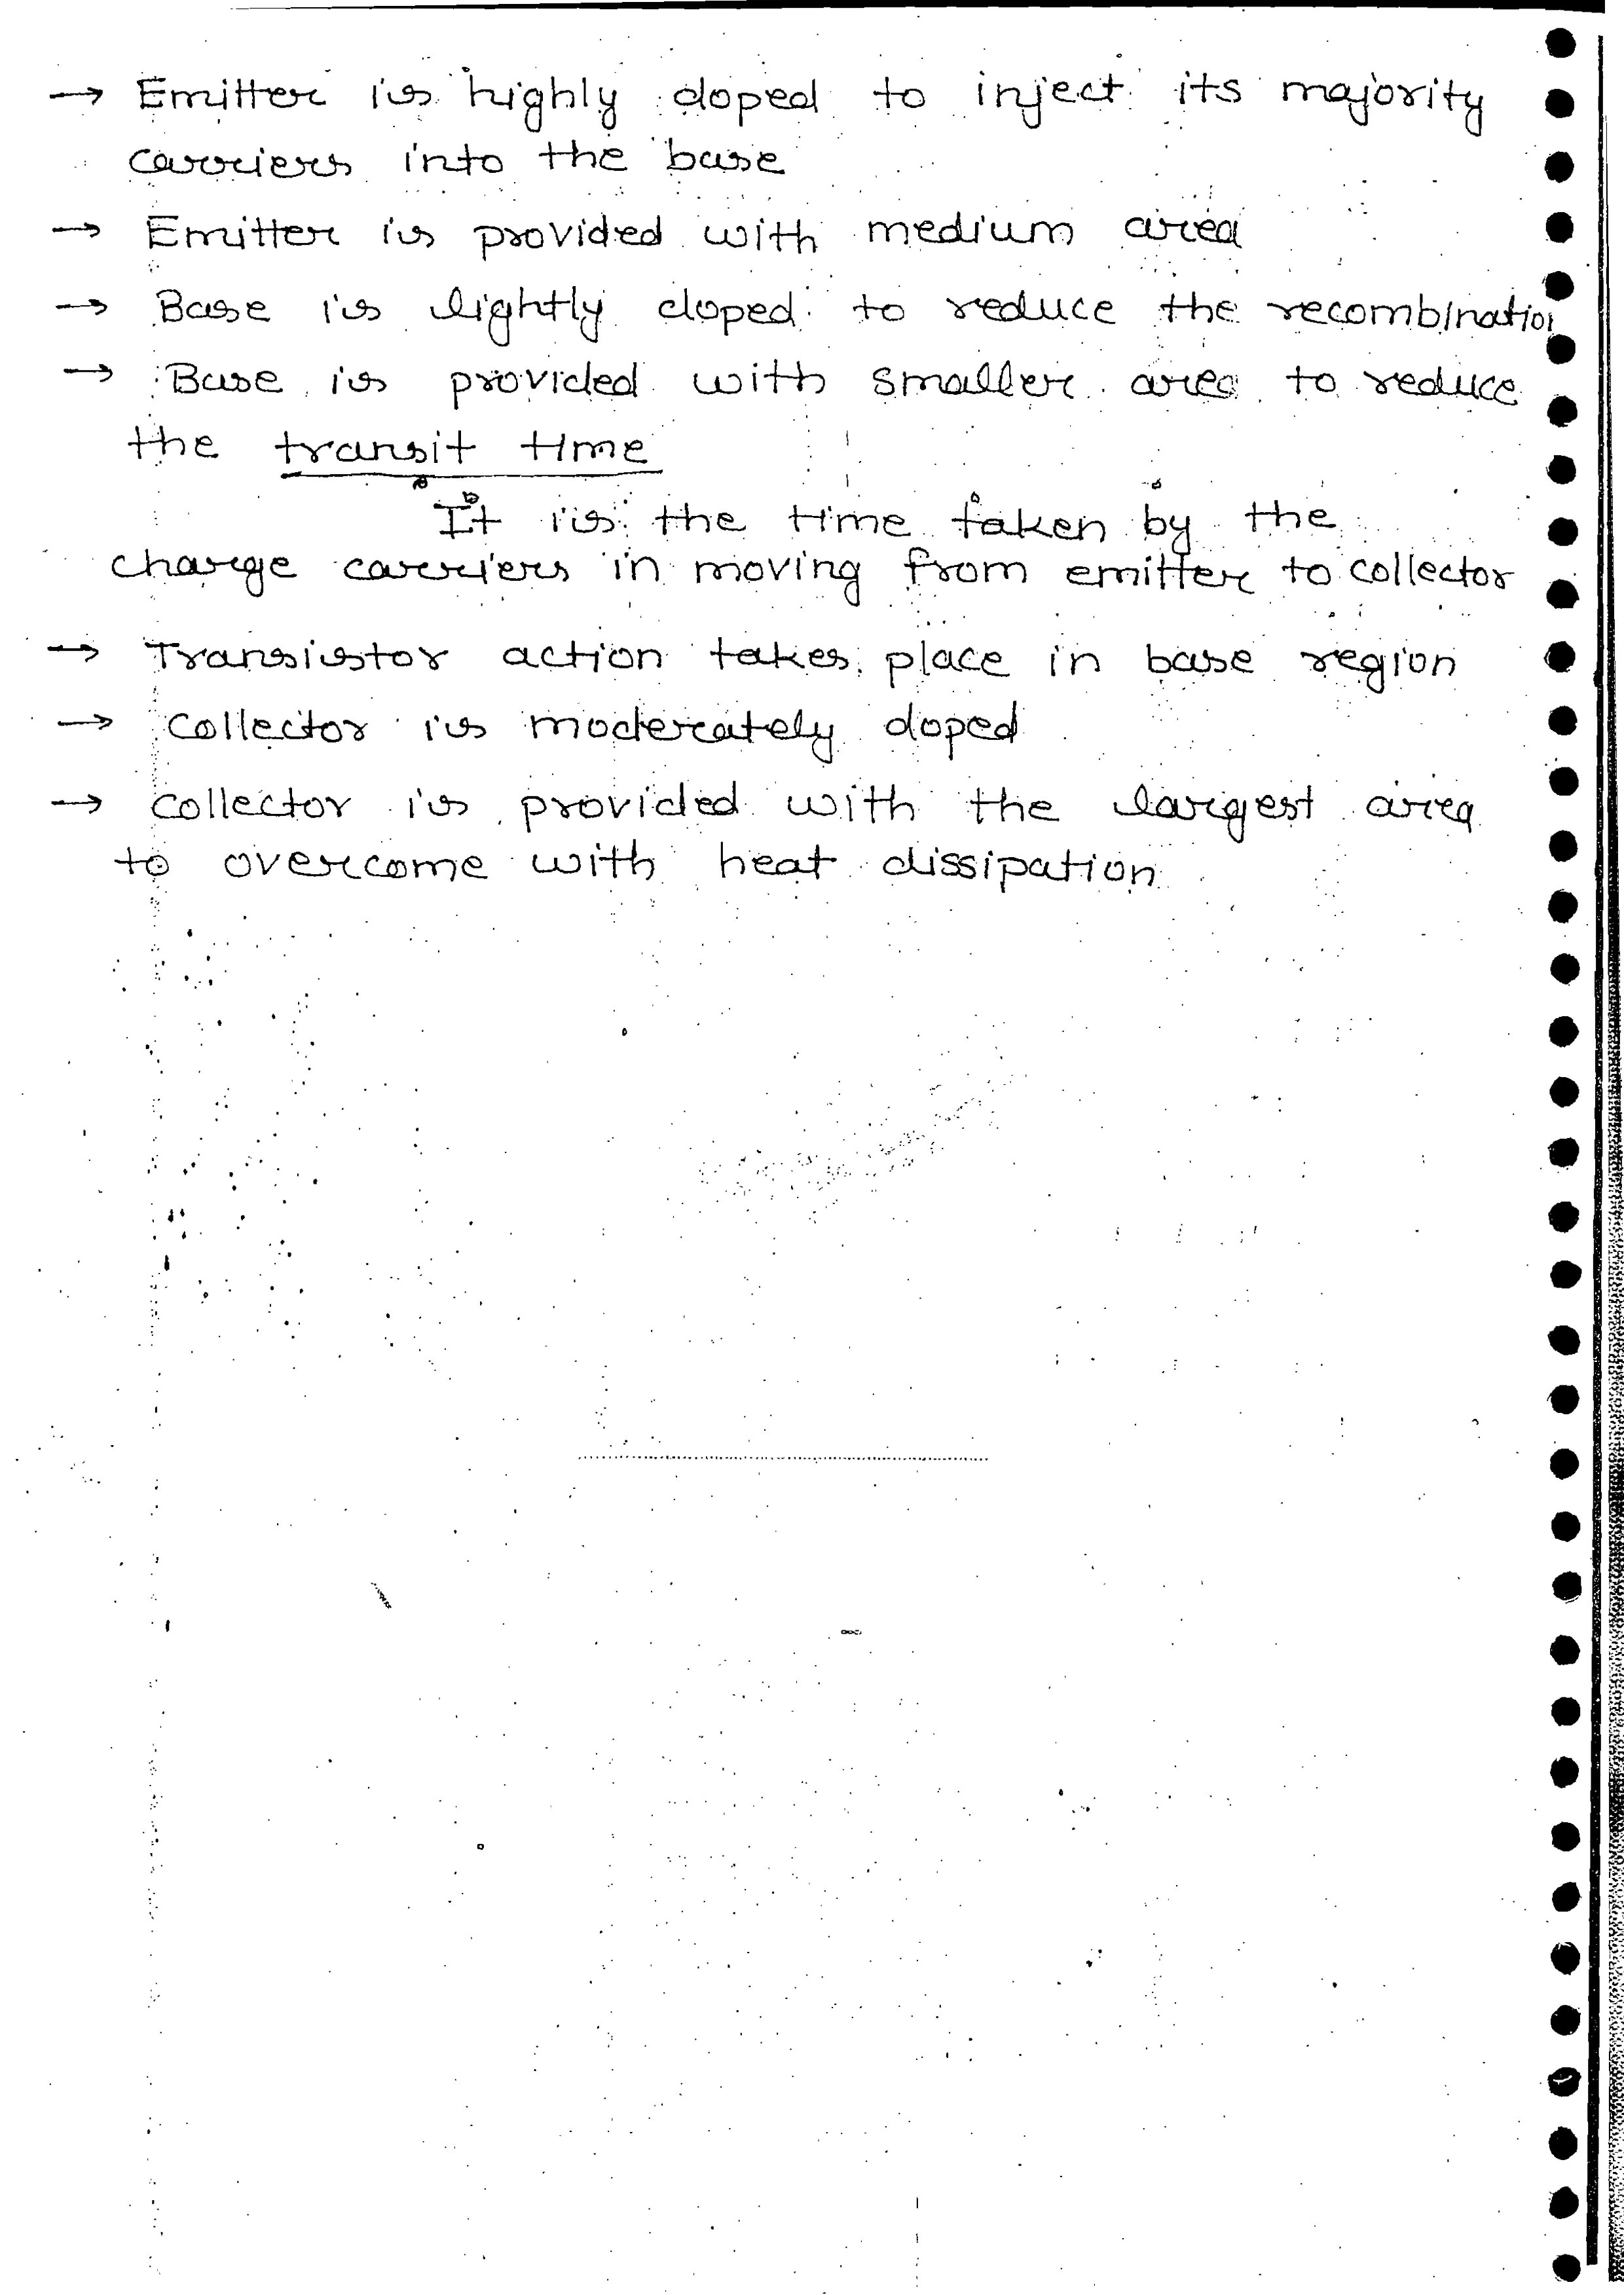 → Emitter is highly doped to inject its majority
carriers into the base
→ Emitter is provided with medium area
→ Base is lightly doped to reduce the recombination
→ Base is provided with smaller area to reduce
the transit time
It is the time taken by the
charge carriers in moving from emitter to collector
→ Transistor action takes place in base region
→ Collector is moderately doped
→ Collector is provided with the largest area
to overcome with heat dissipation